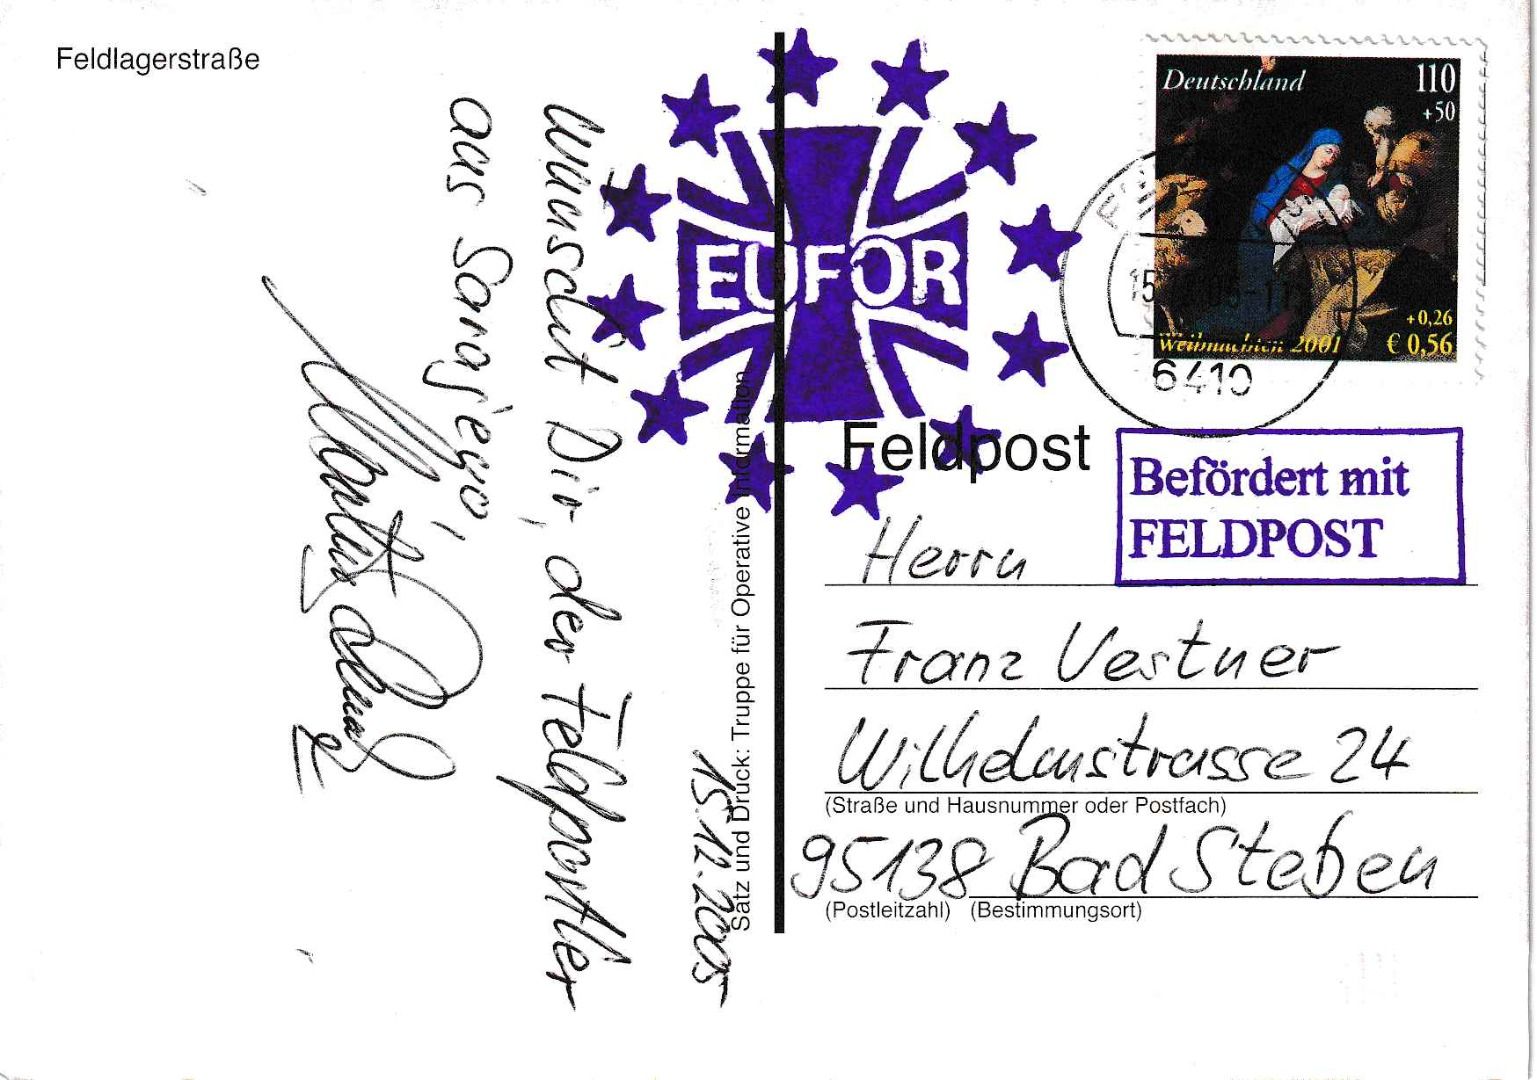 Feldlagerstraße
15.12.2005
wünscht Dir, der Feldpostler
aus Sarajevo,
Satz und Druck: Truppe für Operative Information
EUFOR
Deutschland
110
+50
+0,26
Weihnachten 2001 € 0,56
6410
Feldpost
Befördert mit
FELDPOST
Herrn
Franz Vestner
Wilhelmstrasse 24
(Straße und Hausnummer oder Postfach)
95138 Bad Steben
(Postleitzahl) (Bestimmungsort)